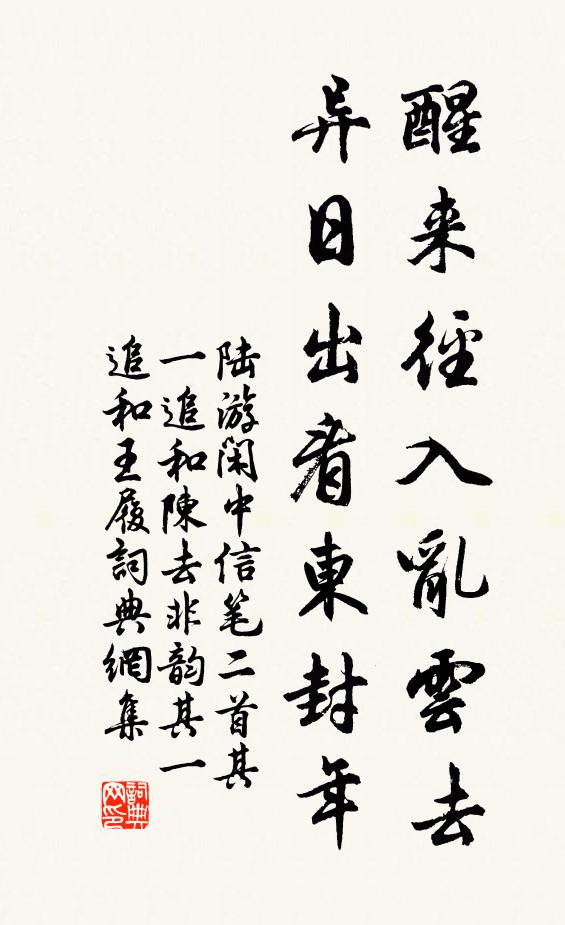 醒来径入亂雲去
异日出看東封年
陆游闲中信笔二首其
一追和陳去非韵其一
追和王履詞典網集
詞典网印